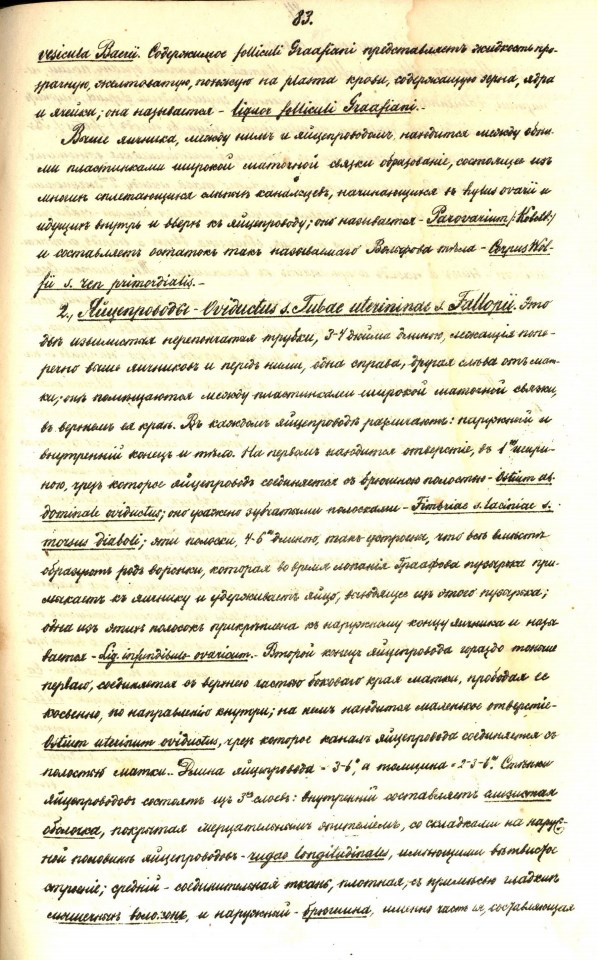 83.
vesicula Baerii. Содержимое folliculi Graafiani представляетъ жидкость про-
зрачную, желтоватую, похожую на plasma крови, содержащую зерна, ядра
и ячейки; она называется - liquor folliculi Graafiani.-
Выше яичника, между нимъ и яйцепроводомъ, находится между обѣи-
ми пластинками широкой маточной связки образованіе, состоящее изъ
многихъ сплетающихся слѣпыхъ канальцевъ, начинающихся въ hylus ovarii и
идущихъ внутрь и вверхъ къ яйцепроводу; оно называется - Parovarium /: Kobelt :/
и составляетъ остатокъ такъ называемаго Вольфова тѣла - Corpus Wol-
fii s. ren primordialis.-
2., Яйцепроводы - Oviductus s. Tubae uterininae s. Fallopii. Это
двѣ извилистыя перепончатыя трубки, 3-4 дюйма длиною, лежащія попе-
речно выше яичниковъ и передъ ними, одна справа, другая слѣва отъ мат-
ки; онѣ помѣщаются между пластинками широкой маточной связки,
въ верхнемъ ея краѣ. Въ каждомъ яйцепроводѣ различаютъ: наружный и
внутренній конецъ и тѣло. На первомъ находится отверстіе, въ 1''' шири-
ною, чрезъ которое яйцепроводъ соединяется съ брюшною полостью - Ostium ab-
dominale oviductus; оно усажено зубчатыми полосками - Fimbriae s. laciniae s.
morsus diaboli; эти полоски, 4-6''' длиною, такъ устроены, что всѣ вмѣстѣ
образуютъ родъ воронки, которая во время лопанія Граафова пузырька при-
мыкаетъ къ яичнику и удерживаетъ яйцо, выходящее изъ этого пузырька;
одна изъ этихъ полосокъ прикрѣплена къ наружному концу яичника и назы-
вается - Lig. infundibulo-ovaricum.- Второй конецъ яйцепровода гораздо тоньше
перваго, соединяется съ верхнею частью боковаго края матки, прободая ее
косвенно, по направленію кнутри; на немъ находится маленькое отверстіе -
Ostium uterinum oviductus, чрезъ которое каналъ яйцепровода соединяется съ
полостью матки.. Длина яйцепровода - 3-6", а толщина - 2-3-6'''. Стѣнки
яйцепроводовъ состоятъ изъ 3хъ слоевъ: внутренній составляетъ слизистая
оболочка, покрытая мерцательнымъ эпителіемъ, со складками на наруж-
ной половинѣ яйцепроводовъ - rugae longitudinales, имѣющими вѣтвистое
строеніе; средній - соединительная ткань, плотная, съ примѣсью гладкихъ
мышечныхъ волоконъ, и наружный - брюшина, именно часть ея, составляющая